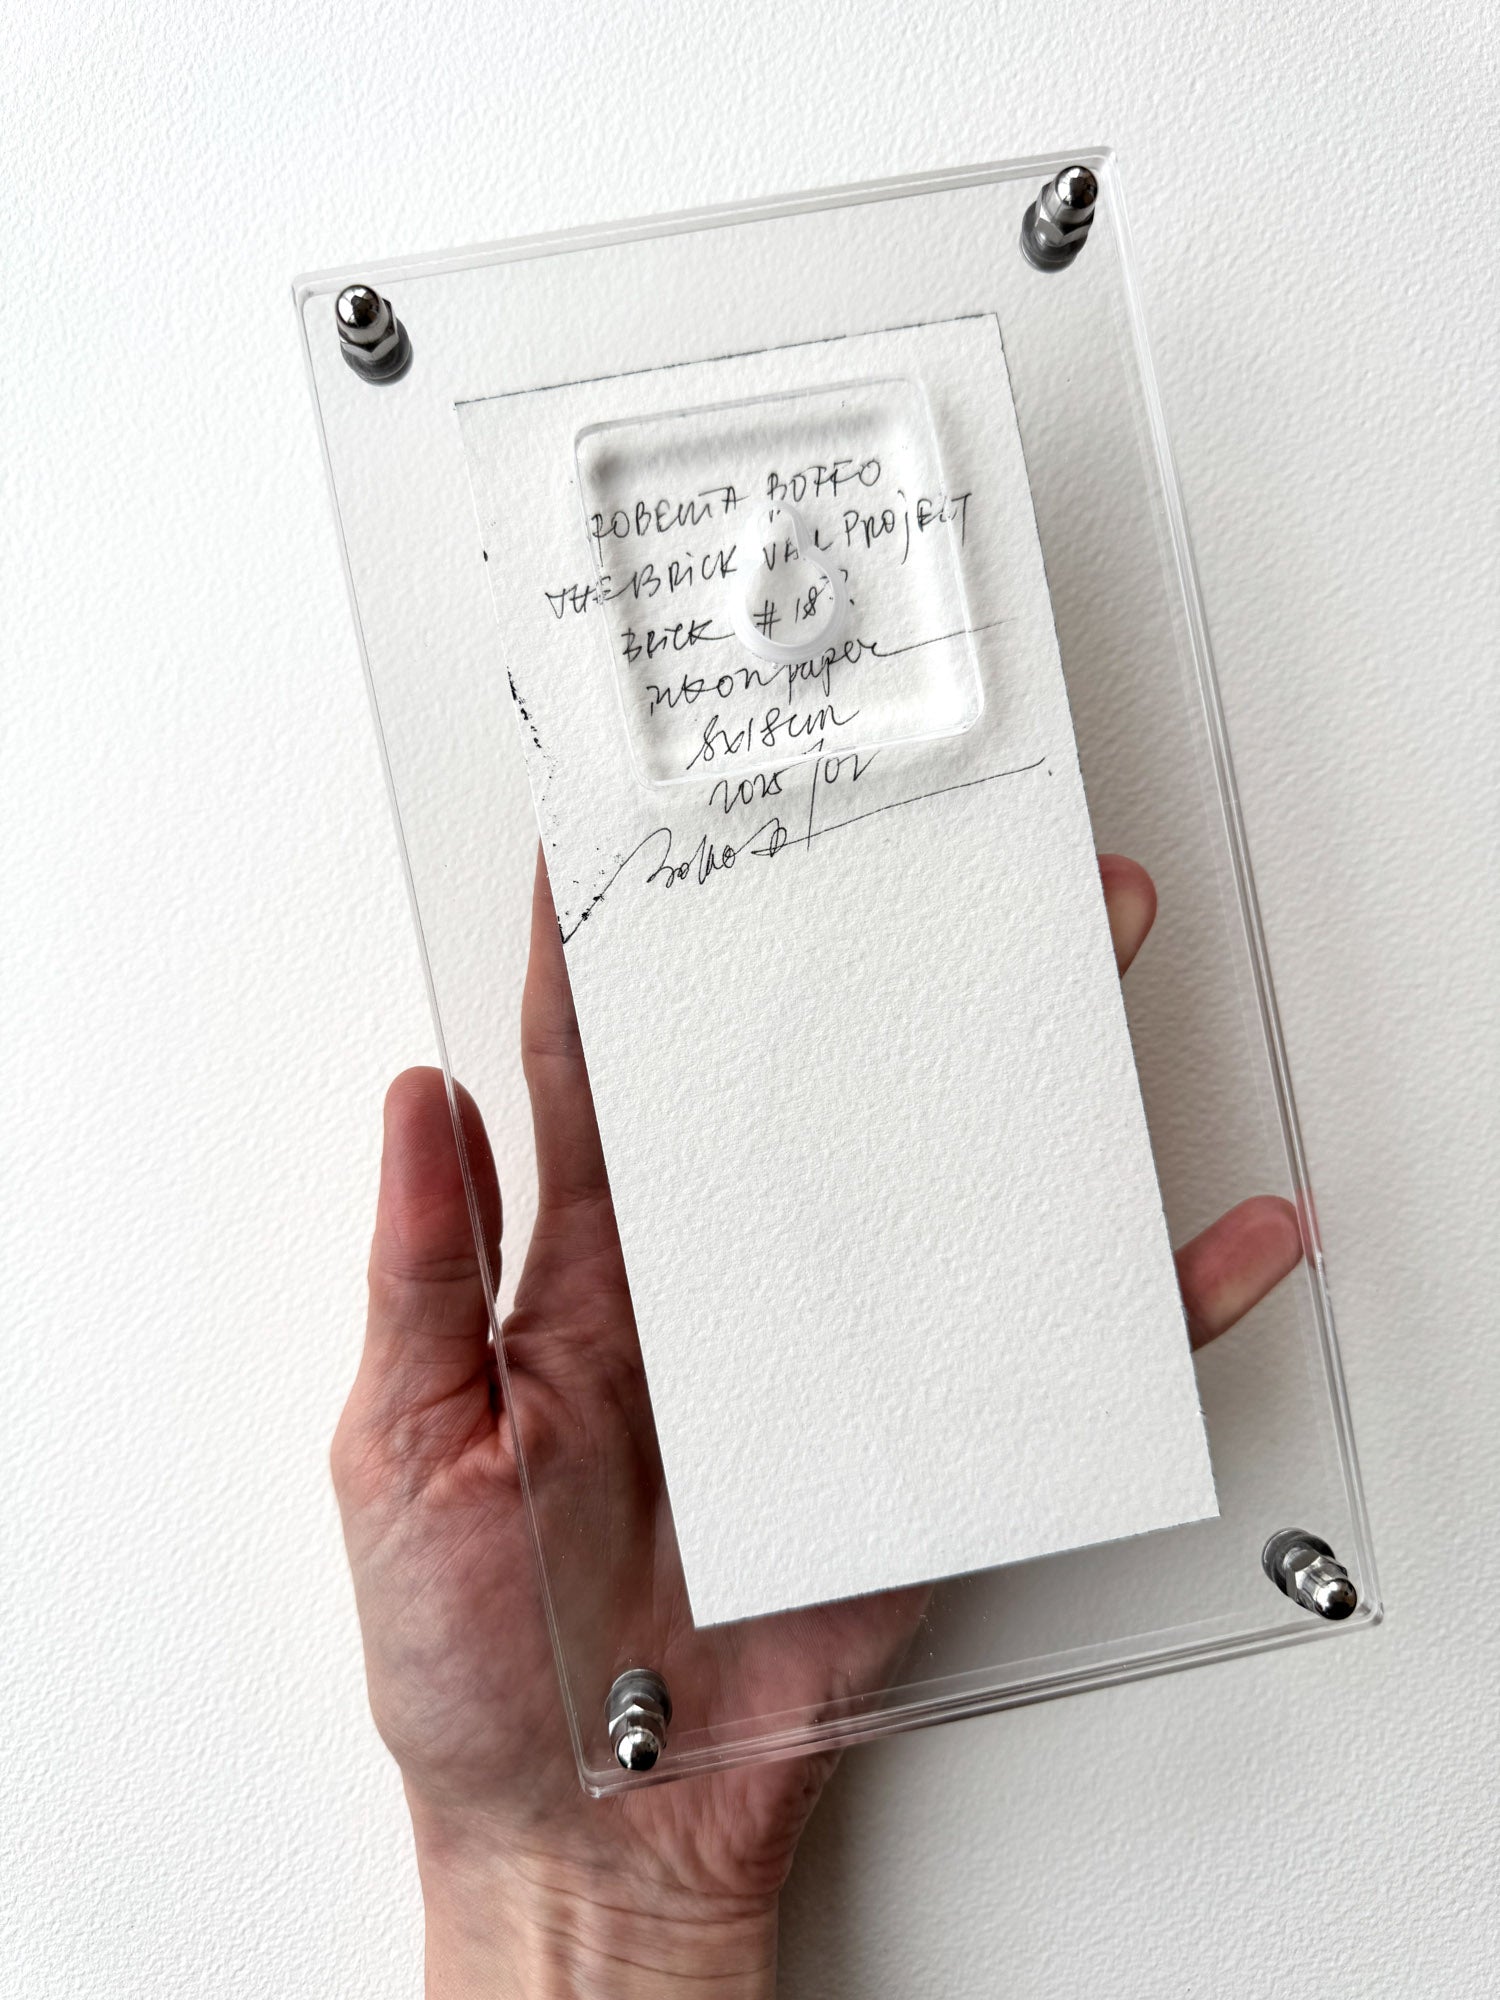 ROBERTA BOFFO
THE BRICK WALL PROJECT
BRICK #
ink on paper
8x18cm
2025/02
Boffo